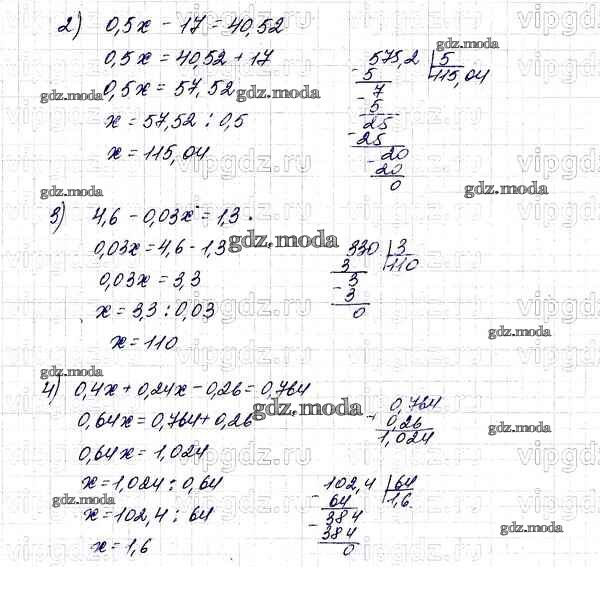 2) 0,5x - 17 = 40,52
0,5x = 40,52 + 17
0,5x = 57,52
x = 57,52 : 0,5
x = 115,04
575,2 | 5
- 5 | 115,04
7
- 5
25
- 25
- 20
20
0
3) 4,6 - 0,03x = 1,3.
0,03x = 4,6 - 1,3
0,03x = 3,3
x = 3,3 : 0,03
x = 110
330 | 3
3 | 110
3
- 3
0
4) 0,4x + 0,24x - 0,26 = 0,764
0,64x = 0,764 + 0,26
0,64x = 1,024
x = 1,024 : 0,64
x = 102,4 : 64
x = 1,6
0,764
+ 0,26
1,024
102,4 | 64
- 64 | 1,6.
384
- 384
0
gdz.moda
vipgdz.ru